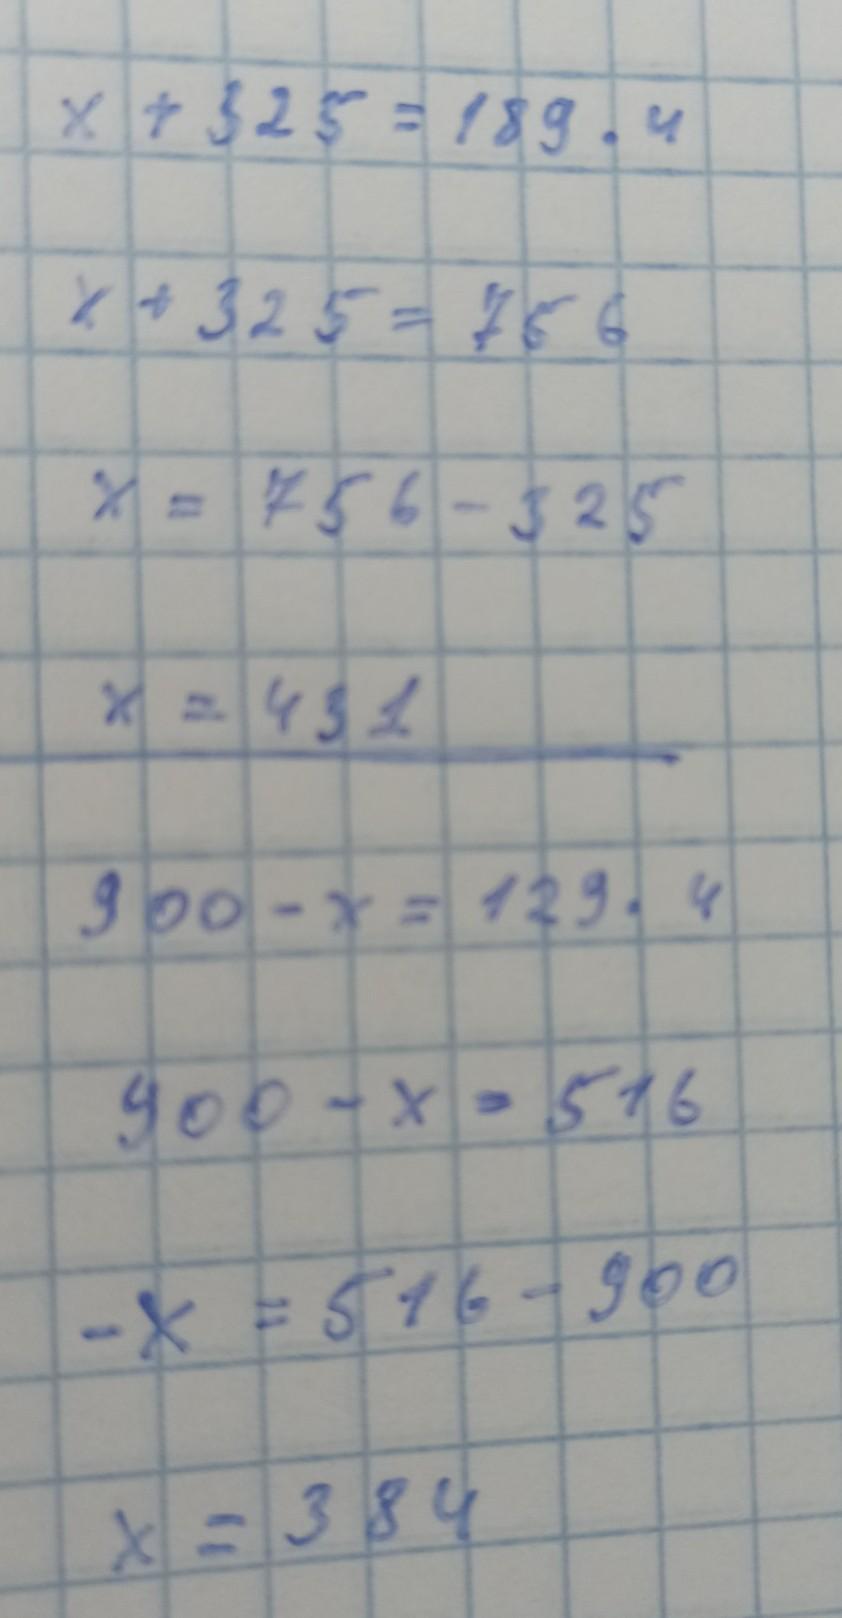 x + 325 = 189 . 4
x + 325 = 756
x = 756 - 325
x = 431
900 - x = 129 . 4
900 - x = 516
-x = 516 - 900
x = 384